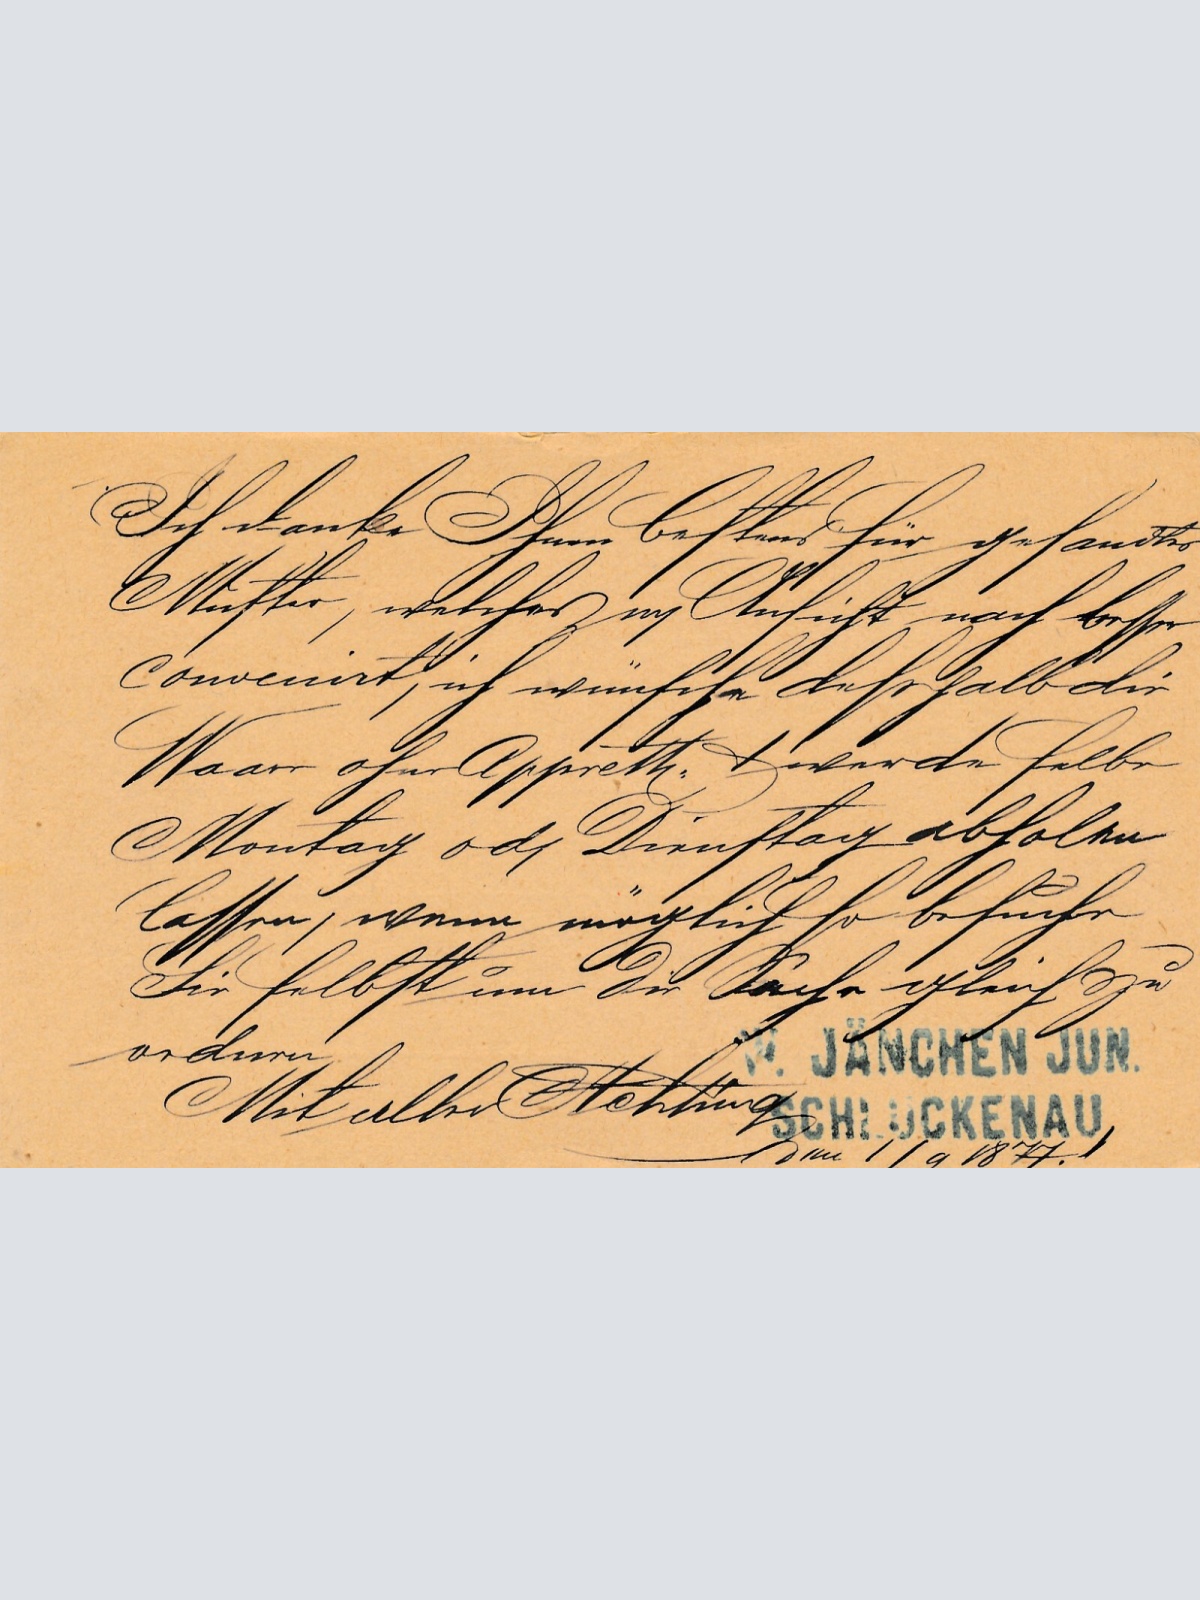 Ich danke Ihnen bestens für gesandtes
Muster, welches m/ Ansicht nach besser
convenirt, ich wünsche deßhalb die
Waare ohne Appreth. & werde selbe
Montag od/ Dienstag abholen
lassen, wenn möglich so besuche
Sie selbst um die Sache gleich zu
ordnen
Mit aller Achtung
W. JÄNCHEN JUN.
SCHLUCKENAU
den 1/9 1877.